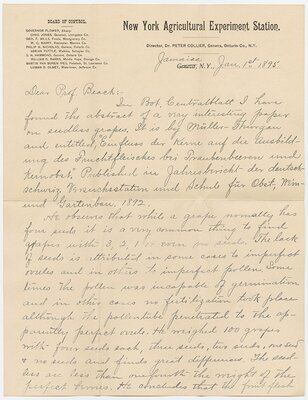 BOARD OF CONTROL.
GOVERNOR FLOWER, Albany.
New York Agricultural Experiment Station.
Director, Dr. PETER COLLIER, Geneva, Ontario Co., N.Y.
Jamaica
Geneva, N.Y., Jan. 1st 1895
Dear Prof Beach:—
In Bot. Centralblatt I have
found the abstract of a very interesting paper
on seedless grapes. It is by Müller-Thurgau
and entitled, Einfluss der Kerne auf die Ausbild-
ung des Fruchtfleisches bei Traubenbeeren und
Kernobst. Published in Jahresbericht der deutsch
schweiz. Versuchsstation und Schule für Obst, Wein-
und Gartenbau, 1892.
He observes that while a grape normally has
four seeds it is a very common thing to find
grapes with 3, 2, 1 or even no seeds. The lack
of seeds is attributed in some cases to imperfect
ovules and in others to imperfect pollen. Some
times the pollen was incapable of germination
and in other cases no fertilization took place
although the pollentube penetrated to the ap-
parently perfect ovule. He weighed 100 grapes
with four seeds each, three seeds, two seeds, one seed
& no seeds and finds great differences. The seed-
less are less than one the weight of the
perfect ones. He concludes that the fruit flesh